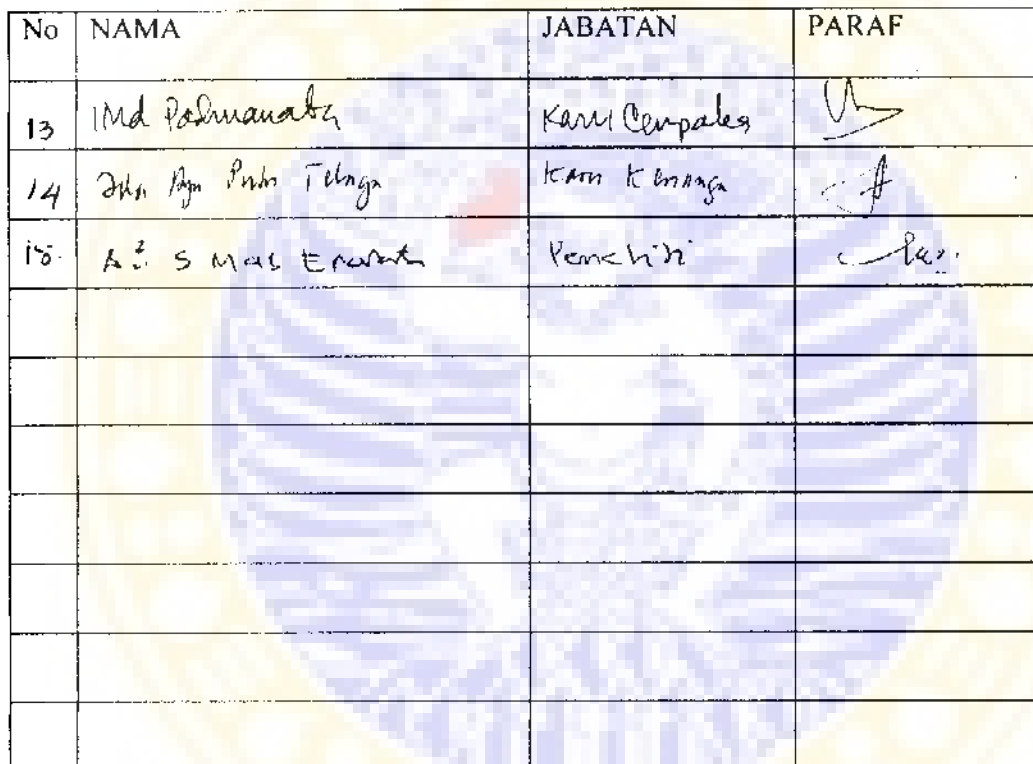 No NAMA JABATAN PARAF
13 IMd Padmanaba Karu Cempaka
14 Ayu Putri Telaga Karu Kenanga
15. S Mas Peneliti